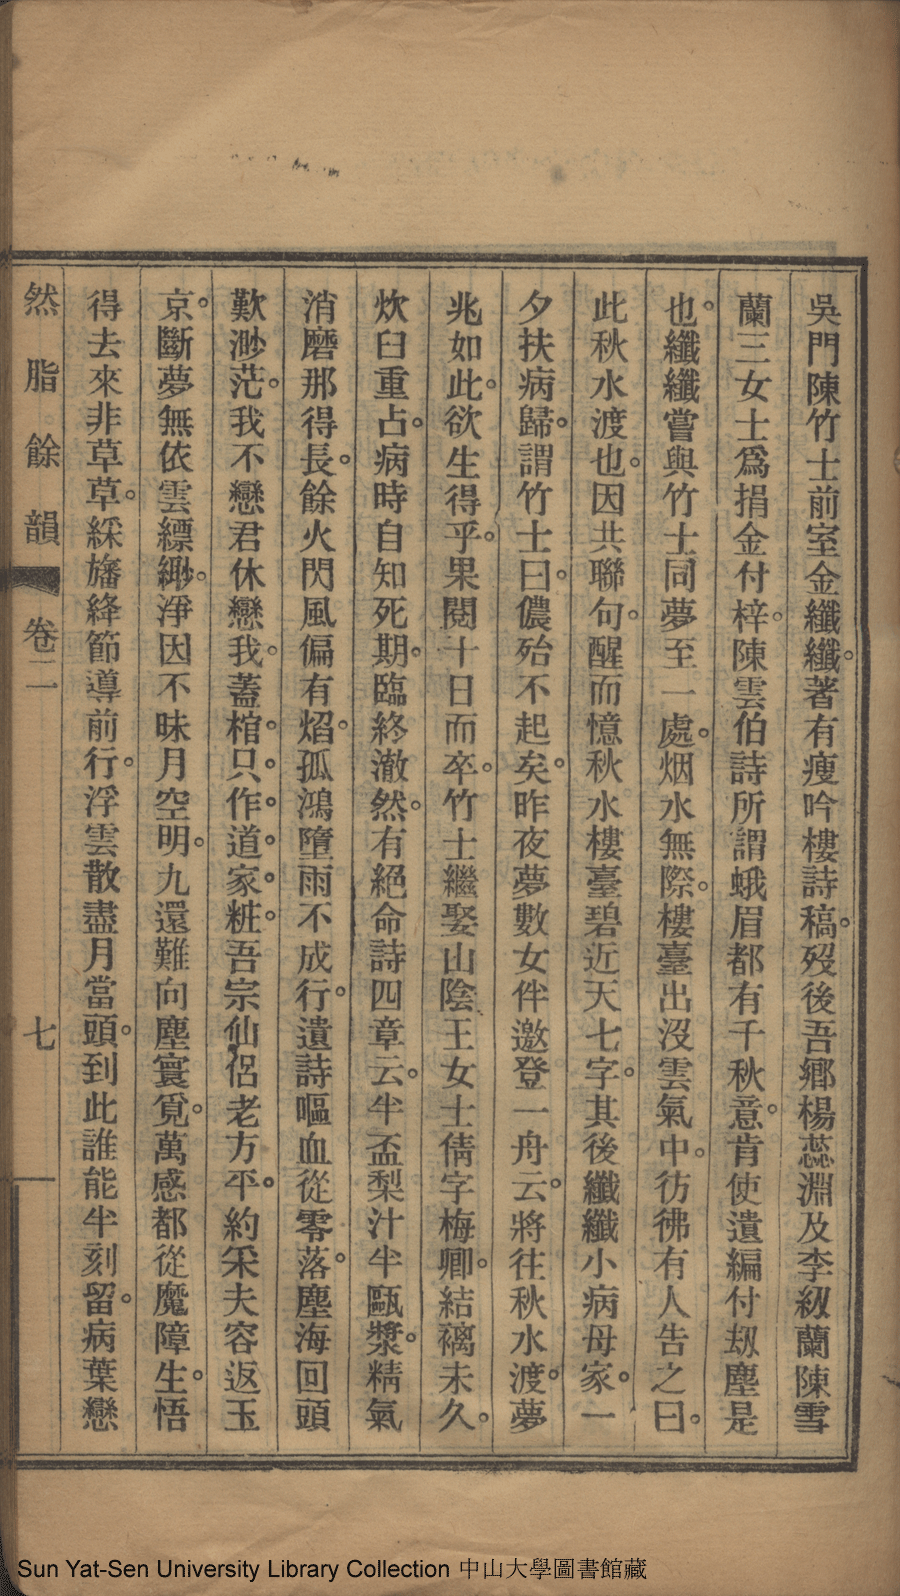 吳門陳竹士前室金纖纖。著有瘦吟樓詩稿。歿後吾鄉楊蕊淵及李紉蘭陳雪
蘭三女士爲捐金付梓。陳雲伯詩所謂蛾眉都有千秋意。肯使遺編付刼塵是
也。纖纖嘗與竹士同夢至一處。烟水無際。樓臺出沒雲氣中。彷彿有人告之曰。
此秋水渡也。因共聯句。醒而憶秋水樓臺碧近天七字。其後纖纖小病母家。一
夕扶病歸。謂竹士曰。儂殆不起矣。昨夜夢數女伴邀登一舟云。將往秋水渡。夢
兆如此。欲生得乎。果閱十日而卒。竹士繼娶山陰王女士倩字梅卿。結褵未久。
炊臼重占。病時自知死期。臨終澈然。有絕命詩四章云。半盃梨汁半甌漿。精氣
消磨那得長。餘火閃風偏有焰。孤鴻墮雨不成行。遺詩嘔血從零落。塵海回頭
歎渺茫。我不戀君休戀我。蓋棺。只。作。道。家。粧。吾宗仙侶老方平。約采夫容返玉
京。斷夢無依雲縹緲。淨因不昧月空明。九還難向塵寰覓。萬感都從魔障生。悟
得去來非草草。綵旛絳節導前行。浮雲散盡月當頭。到此誰能半刻留。病葉戀
然脂餘韻 卷二 七
Sun Yat-Sen University Library Collection 中山大學圖書館藏